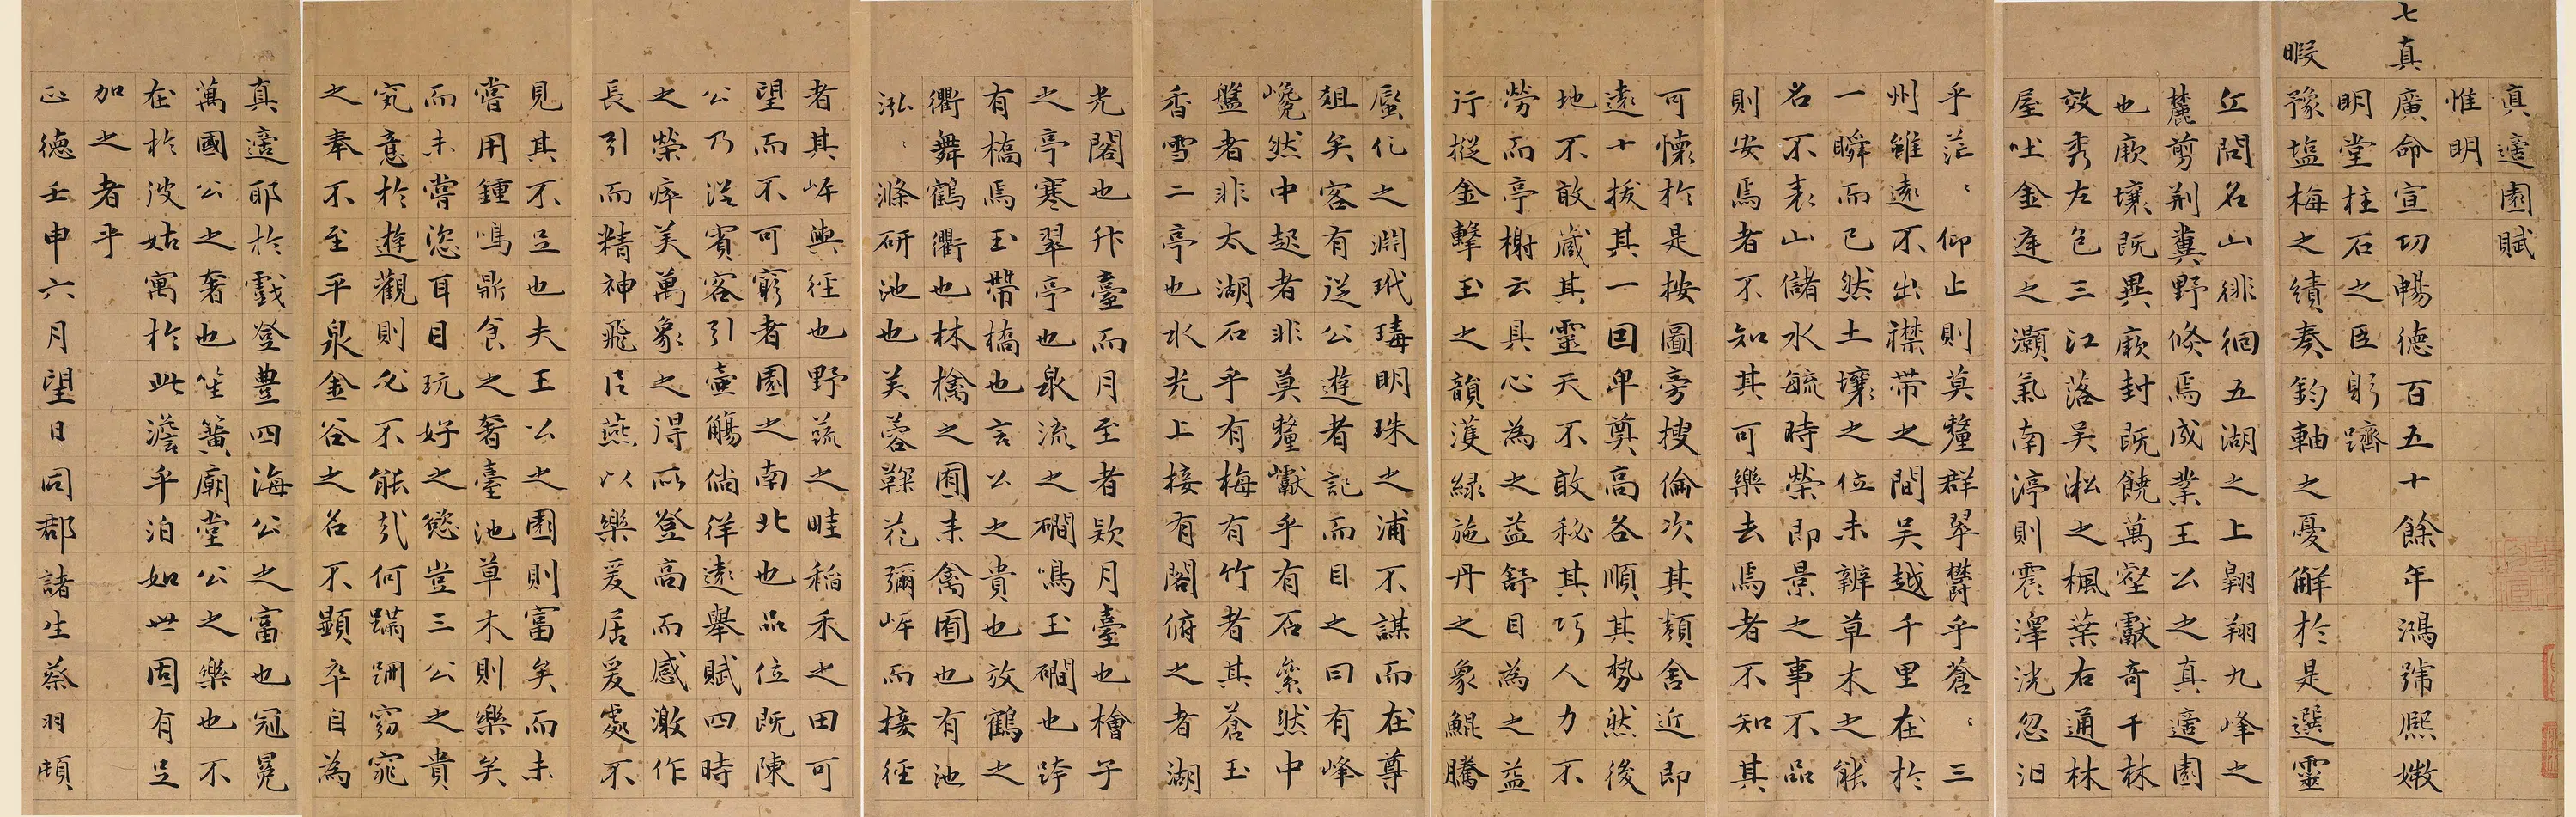 真適園賦
惟明
七真廣命宣切暢德百五十餘年鴻號熙媺
明堂柱石之臣躬躋
暇豫塩梅之績奏鈞軸之憂解於是選靈
丘問名山徘徊五湖之上翱翔九峰之
麓剪荆糞野倏焉成業王公之真適園
也厥壤既異厥封既饒萬壑獻奇千林
效秀左包三江落吴淞之楓葉右通林
屋吐金庭之灝氣南渟則震澤洸忽汨
乎茫〻仰止則莫釐群翠欝乎蒼〻三
州雖遠不出襟带之間吴越千里在於
一瞬而已然土壤之位未辨草木之能
名不表山儲水毓時榮即景之事不品
則安焉者不知其可樂去焉者不知其
可懷於是按圖旁搜倫次其類舍近即
遠十拔其一回卑奠高各順其勢然後
地不敢蔵其靈天不敢秘其巧人力不
勞而亭榭云具心為之益舒目為之益
行摐金擊玉之韻濩緑施丹之象鯤騰
蜃化之淵玳瑇明珠之浦不謀而在尊
爼矣客有送公遊者記而目之曰有峰
巉然中起者非莫釐巘乎有石巋然中
盤者非太湖石乎有梅有竹者其蒼玉
香雪二亭也水光上接有閣俯之者湖
光閣也升臺而月至者欵月臺也檜子
之亭寒翠亭也泉流之磵鳴玉磵也跨
有橋焉玉帶橋也言公之貴也放鶴之
衢舞鶴衢也林檎之囿来禽囿也有池
泓〻滌研池也芙蓉鞠花彌岸而接徑
者其岸與徑也野蔬之畦稲禾之田可
望而不可窮者園之南北也品位既陳
公乃從賓客引壺觴徜徉遠舉賦四時
之榮瘁美萬象之得所登高而感激作
長引而精神飛以燕以樂爰居爰處不
見其不足也夫王公之園則富矣而未
嘗用鍾鳴鼎食之奢臺池草木則樂矣
而未嘗恣耳目玩好之慾豈三公之貴
宂意於遊觀則必不能哉何蹣跚窈窕
之奉不至平泉金谷之名不顯卒自為
真適耶於戲登豊四海公之富也冠冕
萬國公之奢也笙簧廟堂公之樂也不
在於彼姑寓於此澹乎泊如世固有足
加之者乎
正德壬申六月望日同郡諸生蔡羽頓